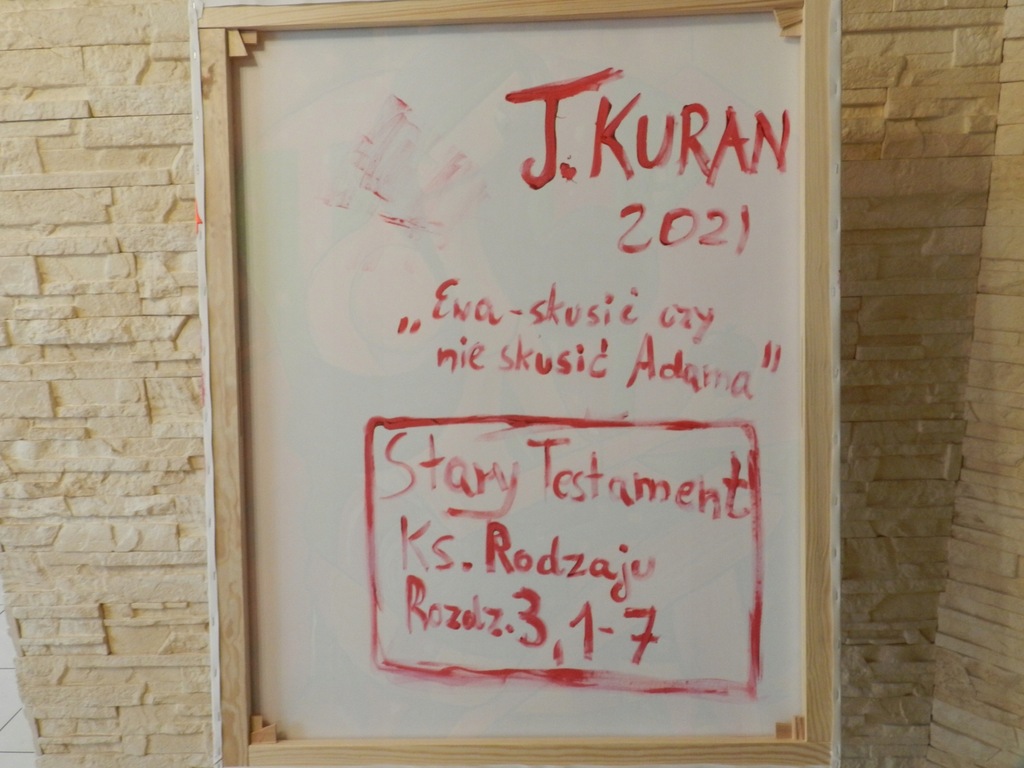 J. KURAN
2021
„Ewa - skusić czy
nie skusić Adama"
Stary Testament
Ks. Rodzaju
Rozdz. 3, 1-7